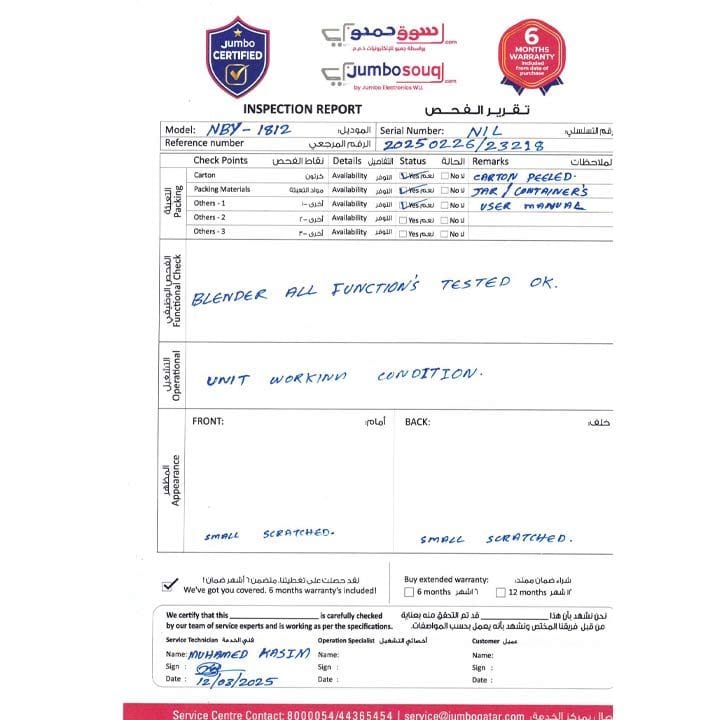 Jumbo
CERTIFIED
سوق جمبو
.com
بواسطة جمبو للإلكترونيات ذ.م.م
jumbosouq
.com
by Jumbo Electronics W.LL
6
MONTHS
WARRANTY
Included
from date of
purchase
INSPECTION REPORT تقرير الفحص
Model: NBY-1812 الموديل: Serial Number: NIL رقم التسلسلي:
Reference number الرقم المرجعي 20250226/23218
Check Points نقاط الفحص Details التفاصيل Status الحالة Remarks الملاحظات
التعبئة Packing
Carton كرتون Availability التوفر Yes نعم No لا CARTON PEELED.
Packing Materials مواد التعبئة Availability التوفر Yes نعم No لا JAR / CONTAINER'S
Others - 1 أخرى -١ Availability التوفر Yes نعم No لا USER MANUAL
Others - 2 أخرى -٢ Availability التوفر Yes نعم No لا
Others - 3 أخرى -٣ Availability التوفر Yes نعم No لا
الفحص الوظيفي Functional Check
BLENDER ALL FUNCTION'S TESTED OK.
التشغيل Operational
UNIT WORKING CONDITION.
المظهر Appearance
FRONT: أمام: BACK: خلف:
SMALL SCRATCHED. SMALL SCRATCHED.
لقد حصلت على تغطيتنا. متضمن ٦ أشهر ضمان!
We've got you covered. 6 months warranty's included!
Buy extended warranty: شراء ضمان ممتد:
6 months ٦ أشهر 12 months ١٢ أشهر
We certify that this is carefully checked
by our team of service experts and is working as per the specifications.
نحن نشهد بأن هذا قد تم التحقق منه بعناية
من قبل فريقنا المختص ونشهد بأنه يعمل بحسب المواصفات.
Service Technician فني الخدمة Operation Specialist أخصائي التشغيل Customer عميل
Name: MUHAMED KASIM Name: Name:
Sign : Sign : Sign :
Date : 12/03/2025 Date : Date :
Service Centre Contact: 8000054/44365454 | service@jumboqatar.com | صال بمركز الخدمة